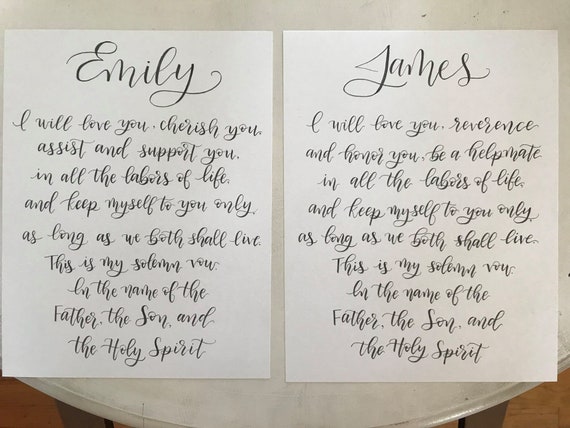 Emily
I will love you, cherish you,
assist and support you,
in all the labors of life,
and keep myself to you only,
as long as we both shall live.
This is my solemn vow.
In the name of the
Father, the Son, and
the Holy Spirit
James
I will love you, reverence
and honor you, be a helpmate
in all the labors of life,
and keep myself to you only
as long as we both shall live.
This is my solemn vow.
In the name of the
Father, the Son, and
the Holy Spirit